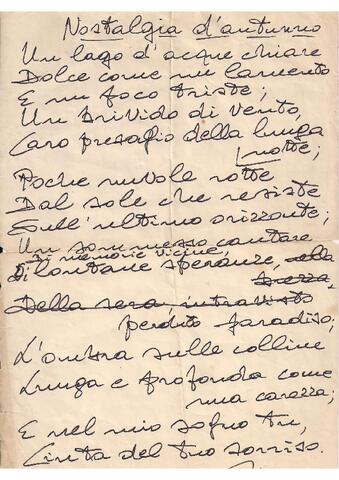 Nostalgia d'autunno
Un lago d'acque chiare
Dolce come un lamento
E un foco triste;
Un brivido di vento,
Caro presagio della lunga
notte;
Poche nuvole rotte
Dal sole che resiste
Sull'ultimo orizzonte;
Un sommesso cantare
Di memorie vicine,
Di lontane speranze, alla
brezza,
Della sera, intravisto
perduto paradiso;
L'ombra sulle colline
Lunga e profonda come
una carezza;
E nel mio sogno tu,
Cinta del tuo sorriso.